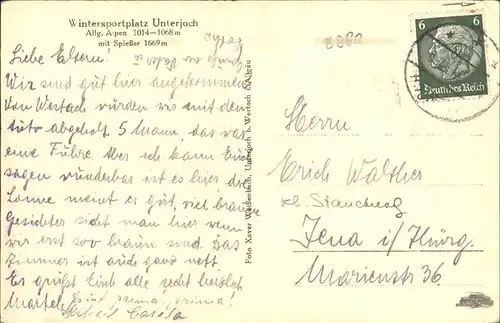 Wintersportplatz Unterjoch
Allg. Alpen 1014–1068 m
mit Spießer 1669 m
Liebe Eltern!
Wir sind gut hier angekommen
Von Wertach wurden wir mit dem
Auto abgeholt 5 Mann das war
eine Fuhre. Aber ich kann Euch
sagen wunderbar ist es hier, die
Sonne meint es gut, viel braune
Gesichter sieht man hier wenn
wir erst so braun sind. Das
Zimmer ist auch ganz nett.
Es grüßt Euch alle recht herzlich
prima, prima!
Foto Xaver Weißenbach, Unterjoch b. Wertach i. Allgäu
6 6
Deutsches Reich
Herrn
Erich Walther
Jena i/Thürg.
Marienstr 36